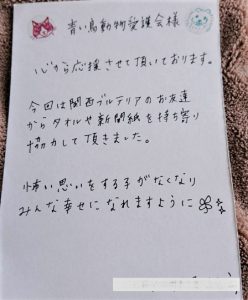 青い鳥動物愛護会様
心から応援させて頂いております。
今回は関西ブルテリアのお友達
からタオルや新聞紙を持ち寄り
協力して頂きました。
怖い思いをする子がなくなり
みんな幸せになれますように